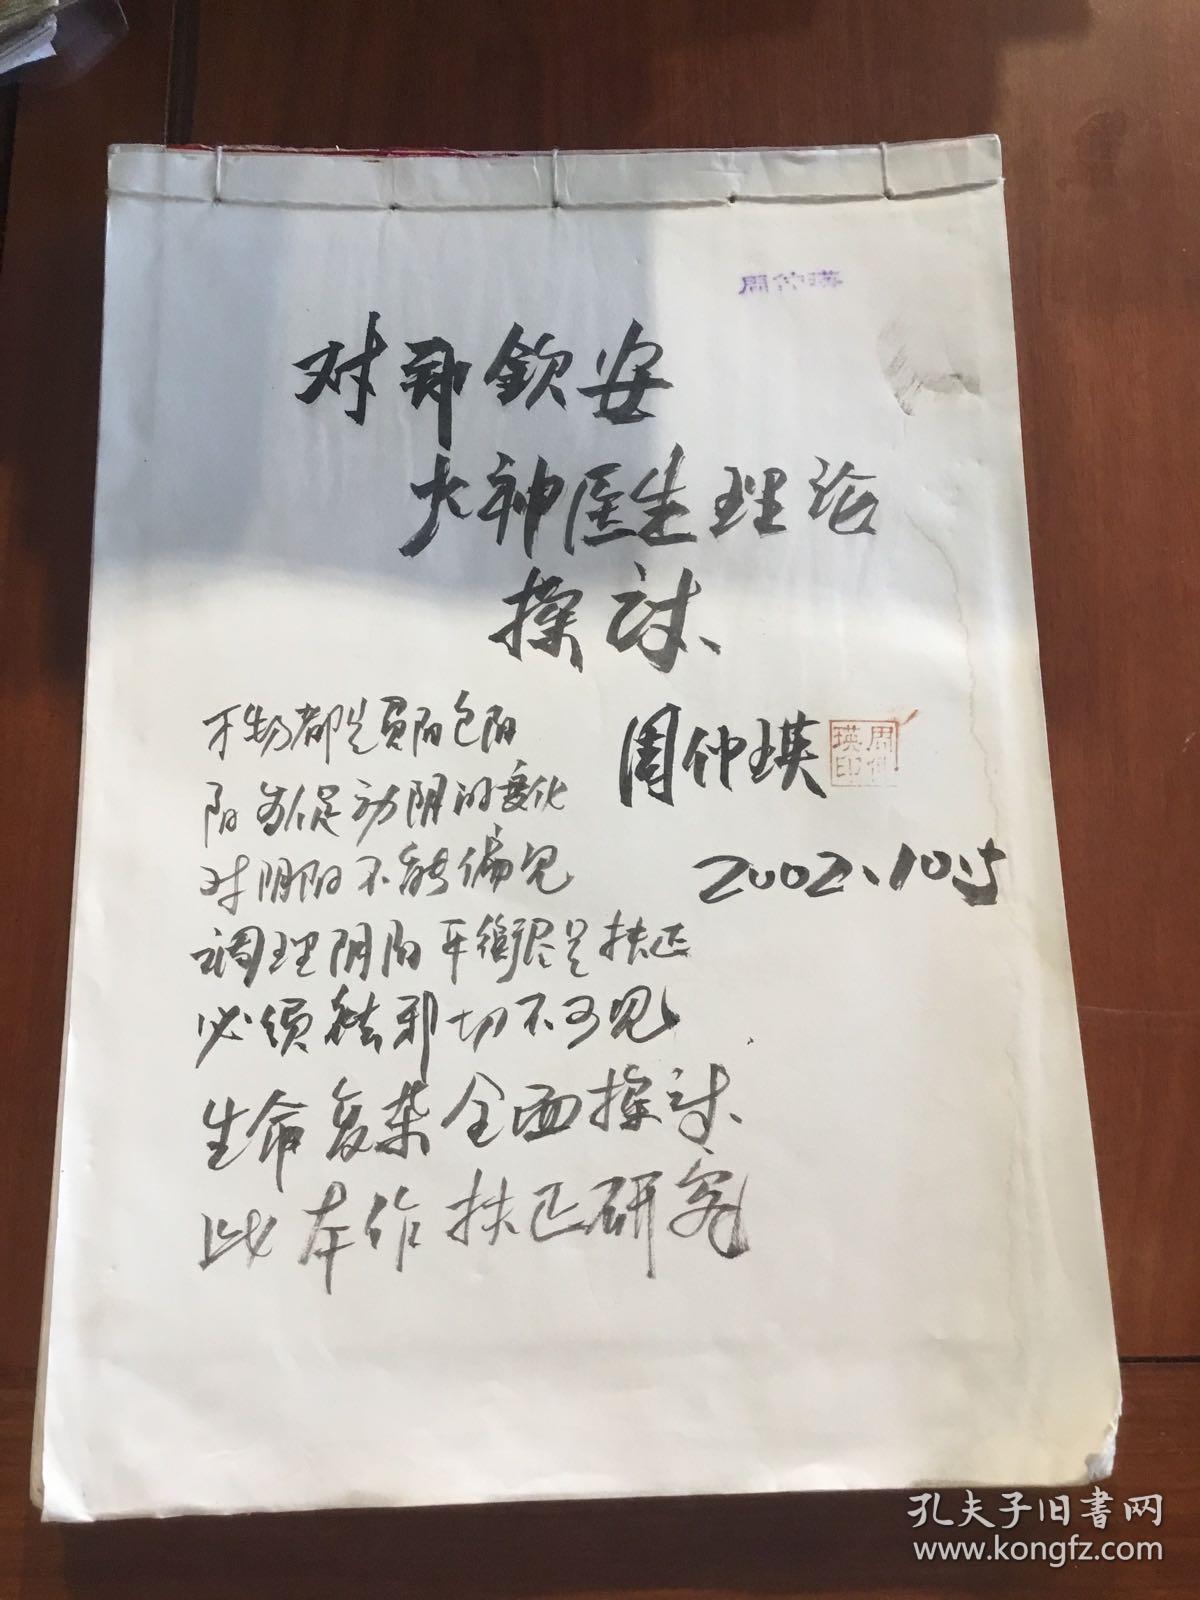 周仲瑛
对郑钦安
火神医生理论
探讨、
万物都是负阴包阳
阳为促动阴的变化
对阴阳不能偏见
调理阴阳平衡尽是扶正
必须祛邪切不可见
生命复杂全面探讨、
此本作扶正研究
周仲瑛
周仲瑛印
2002、10.5
孔夫子旧书网
www.kongfz.com